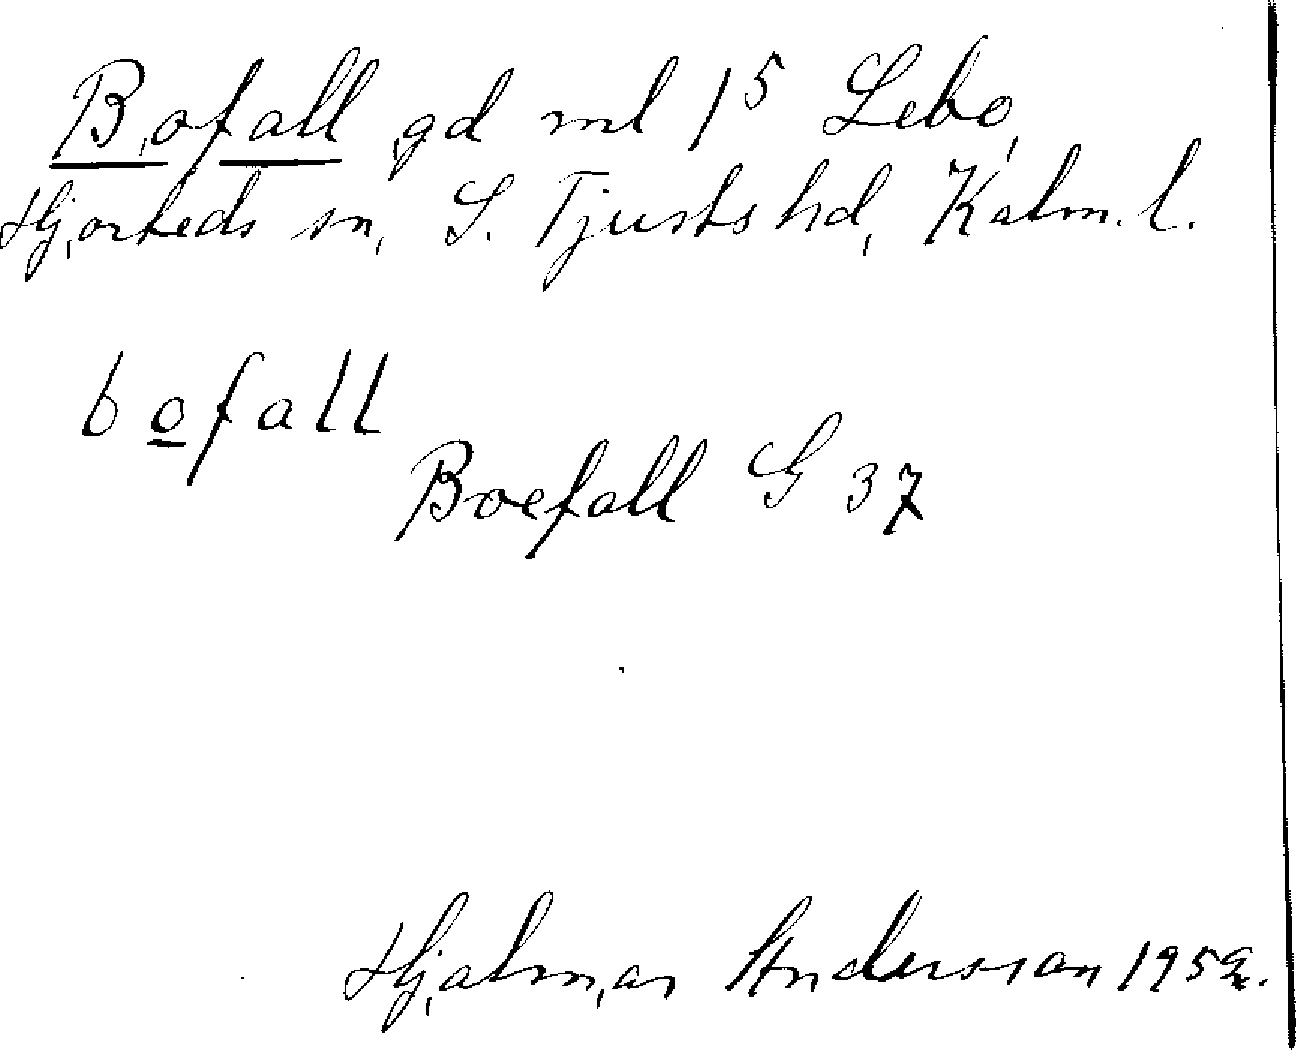 Bofall gd ml 1⁵ Lebo,
Hjorteds sn, S. Tjusts hd, Kalm. l.
bofall
Boefall G 37
Hjalmar Andersson 1952.